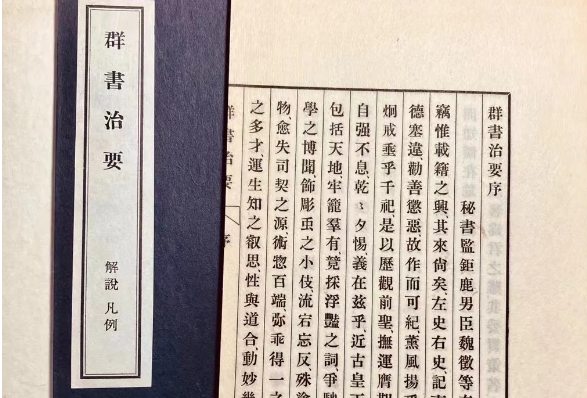 群書治要
解說 凡例
群書治要序
秘書監鉅鹿男臣魏徵等
竊惟載籍之興、其來尚矣、左史右史、記
德塞違、勸善懲惡、故作而可紀、薰風揚乎
炯戒垂乎千祀、是以歷觀前聖、撫運膺期
自强不息、乾〻夕惕、義在茲乎、近古皇
包括天地、牢籠羣有、競採浮豔之詞、爭馳
學之博聞、飾彫虫之小伎、流宕忘反、殊塗
物、愈失司契之源、術惣百端、弥乖得一之
之多才、運生知之叡思、性與道合、動妙幾
群書治要 序